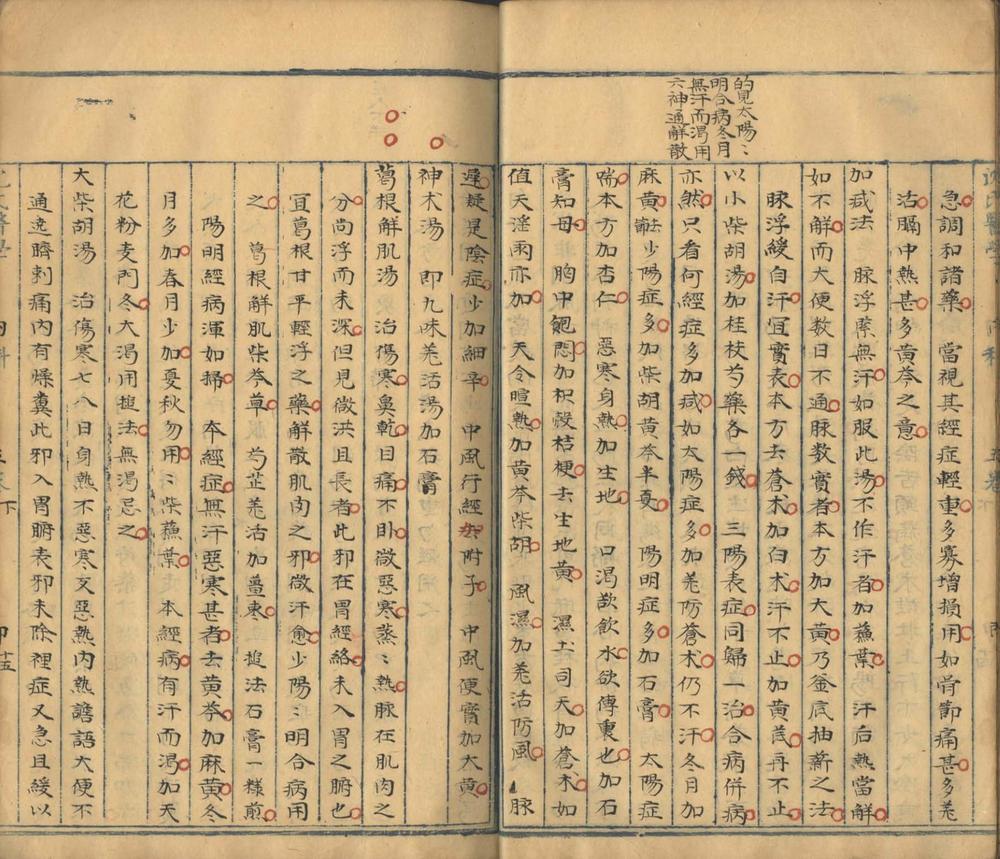 沈氏醫學 內科
的見太陽〻
明合病冬月
無汗而渴用
六神通解散
急調和諸藥 當視其經症輕重多寡增損用如骨節痛甚多羗
活膈中熱甚多黃芩之意
加减法 脉浮緊無汗如服此湯不作汗者加蘓葉 汗后熱當解
如不解而大便数日不通脉数實者本方加大黃乃釜底抽薪之法
脉浮緩自汗宜實表本方去蒼术加白术汗不止加黃芪再不止
以小柴胡湯加桂枝芍藥各一錢 三陽表症同歸一治合病併病
亦然只看何經症多加减如太陽症多加羗防蒼术仍不汗冬月加
麻黃 少陽症多加柴胡黃芩半夏 陽明症多加石膏 太陽症
喘本方加杏仁 惡寒身熱加生地 口渴欲飲水欲傳裏也加石
膏知母 胸中飽悶加枳殼桔梗去生地黃 濕土司天加蒼术如
值天淫雨亦加 天令暄熱加黃芩柴胡 風濕加羗活防風 脉
遲疑是陰症少加細辛 中風行經加附子 中風便實加大黃
神术湯 即九味羗活湯加石膏
葛根解肌湯 治傷寒鼻乾目痛不卧微惡寒蒸〻熱脉在肌肉之
分尚浮而未深但見微洪且長者此邪在胃經絡未入胃之腑也
宜葛根甘平輕浮之藥解散肌肉之邪微汗愈少陽〻明合病用
之 葛根解肌柴芩草 芍芷羗活加薑棗 搥法石膏一樣煎
陽明經病渾如掃 本經症無汗惡寒甚者去黃芩加麻黃冬
月多加春月少加夏秋勿用〻柴蘓葉 本經病有汗而渴加天
花粉麦門冬大渴用搥法無渴忌之
大柴胡湯 治傷寒七八日身熱不惡寒又惡熱內熱譫語大便不
通遶臍刺痛內有燥糞此邪入胃腑表邪未除裡症又急且緩以
沈氏醫學 內科